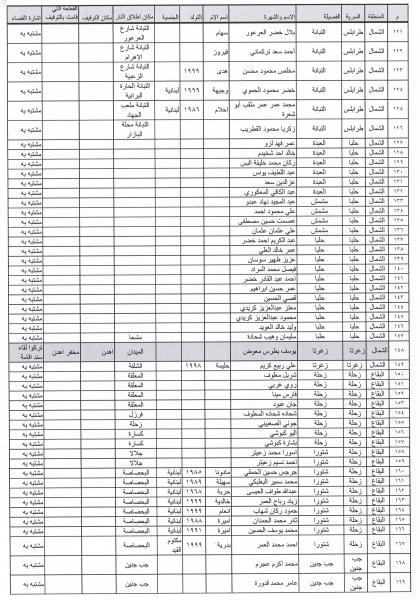 م المنطقة السرية الفصيلة الاسم والشهرة اسم الام التولد الجنسية مكان اطلاق النار مكان التوقيف القطعة التي قامت بالتوقيف اشارة القضاء
١٢١ الشمال طرابلس التبانة بلال خضر العرعور سهام التبانة شارع العرعور مشتبه به
١٢٢ الشمال طرابلس التبانة احمد سعد تركماني فيروز التبانة شارع الاهرام مشتبه به
١٢٣ الشمال طرابلس التبانة مخلص محمود محسن هدى ١٩٩٩ التبانة شارع مشتبه به
١٢٤ الشمال طرابلس التبانة خضر محمود الحموي وجيهة ١٩٦٩ لبنانية التبانة الحارة البرانية مشتبه به
١٢٥ الشمال طرابلس التبانة محمد عمر عمر ملقب أبو شعرة احلام ١٩٨٦ لبنانية التبانة ملعب الجهاد مشتبه به
١٢٦ الشمال طرابلس التبانة زكريا محمود القطريب التبانة محلة البازار مشتبه به
١٢٧ الشمال حلبا العبدة عمر فهد لزو مشتبه به
١٢٨ الشمال حلبا العبدة خالد احد مشتبه به
١٢٩ الشمال حلبا العبدة زكان محمد خليفة مشتبه به
١٣٠ الشمال حلبا العبدة عبد اللطيف يونس مشتبه به
١٣١ الشمال حلبا العبدة عز الدين سعد مشتبه به
١٣٢ الشمال حلبا العبدة عبد الكافي مشتبه به
١٣٣ الشمال حلبا مشمش عبد المجيد نهاد عبدو مشتبه به
١٣٤ الشمال حلبا مشمش علي محمود احمد مشتبه به
١٣٥ الشمال حلبا مشمش عصمت حسين مصطفى مشتبه به
١٣٦ الشمال حلبا مشمش علي عثمان عثمان مشتبه به
١٣٧ الشمال حلبا حلبا عبد الكريم احمد خضر مشتبه به
١٣٨ الشمال حلبا حلبا عمر خالد العلي مشتبه به
١٣٩ الشمال حلبا حلبا عزيز ظهير سوسان مشتبه به
١٤٠ الشمال حلبا حلبا فيصل محمد المراد مشتبه به
١٤١ الشمال حلبا حلبا احمد عبد القادر خضر مشتبه به
١٤٢ الشمال حلبا حلبا عمر حسين ابراهيم مشتبه به
١٤٣ الشمال حلبا حلبا قصي الحسين مشتبه به
١٤٤ الشمال حلبا حلبا معتز عبدالعزيز كريدي مشتبه به
١٤٥ الشمال حلبا حلبا محمود عبدالعزيز كريدي مشتبه به
١٤٦ الشمال حلبا حلبا وليد خالد العويد مشتبه به
١٤٧ الشمال حلبا حلبا سليمان وهيب شحادة مشحا مشتبه به
١٤٨ الشمال زغرتا زغرتا يوسف بطرس معوض الميدان اهدن مخفر اهدن تركوا لقاء سند اقامة
١٤٩ الشمال زغرتا زغرتا علي ربيع كريم حليمة ١٩٩٨ مشتبه به
١٥٠ البقاع زحلة زحلة شربل معلوف المعلقة مشتبه به
١٥١ البقاع زحلة زحلة روي عربي المعلقة مشتبه به
١٥٢ البقاع زحلة زحلة فارس مينا المعلقة مشتبه به
١٥٣ البقاع زحلة زحلة جان عبود المعلقة مشتبه به
١٥٤ البقاع زحلة زحلة شحاده شحاده المعلوف فرزل مشتبه به
١٥٥ البقاع زحلة زحلة جوني الصغبيني زحلة مشتبه به
١٥٦ البقاع زحلة زحلة ايو كبوشي كسارة مشتبه به
١٥٧ البقاع زحلة زحلة بشارة كبوشي كسارة مشتبه به
١٥٨ البقاع زحلة شتورا محمد زعيتر جلالا مشتبه به
١٥٩ البقاع زحلة شتورا احمد نسيم زعيتر جلالا مشتبه به
١٦٠ البقاع زحلة شتورا جرجس حسين الحمصي مادونا ١٩٨٥ لبنانية البحصاصة مشتبه به
١٦١ البقاع زحلة شتورا محمد سمير البعلبكي سهيلة ١٩٨٩ لبنانية البحصاصة مشتبه به
١٦٢ البقاع زحلة شتورا عبدالله طواف العيسى حربة ١٩٦٨ لبنانية البحصاصة مشتبه به
١٦٣ البقاع زحلة شتورا زياد رباح العمر خالدية ١٩٩٩ لبنانية البحصاصة مشتبه به
١٦٤ البقاع زحلة شتورا حمود ركان شهاب انعام ١٩٩٩ لبنانية البحصاصة مشتبه به
١٦٥ البقاع زحلة شتورا ثائر محمد الحمدان اميرة ١٩٨٨ لبنانية البحصاصة مشتبه به
١٦٦ البقاع زحلة شتورا محمد يوسف الحسين اميرة ١٩٩١ لبنانية البحصاصة مشتبه به
١٦٧ البقاع زحلة شتورا احمد محمد العمر بدرية ١٩٩٩ مكتوم القيد البحصاصة مشتبه به
١٦٨ البقاع جب جنين جب جنين محمد اكرم عجرم جب جنين مشتبه به
١٦٩ البقاع جب جنين جب جنين عامر محمد قدورة جب جنين مشتبه به